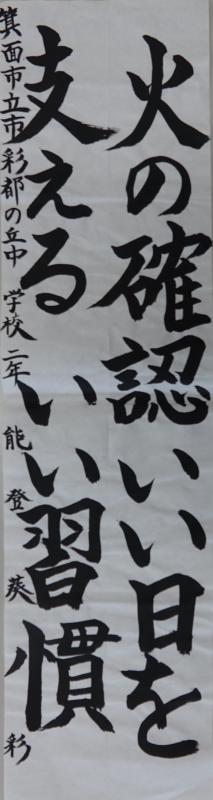 火の確認いい日を
支えるいい習慣
箕面市立市彩都の丘中学校二年 能登葵彩